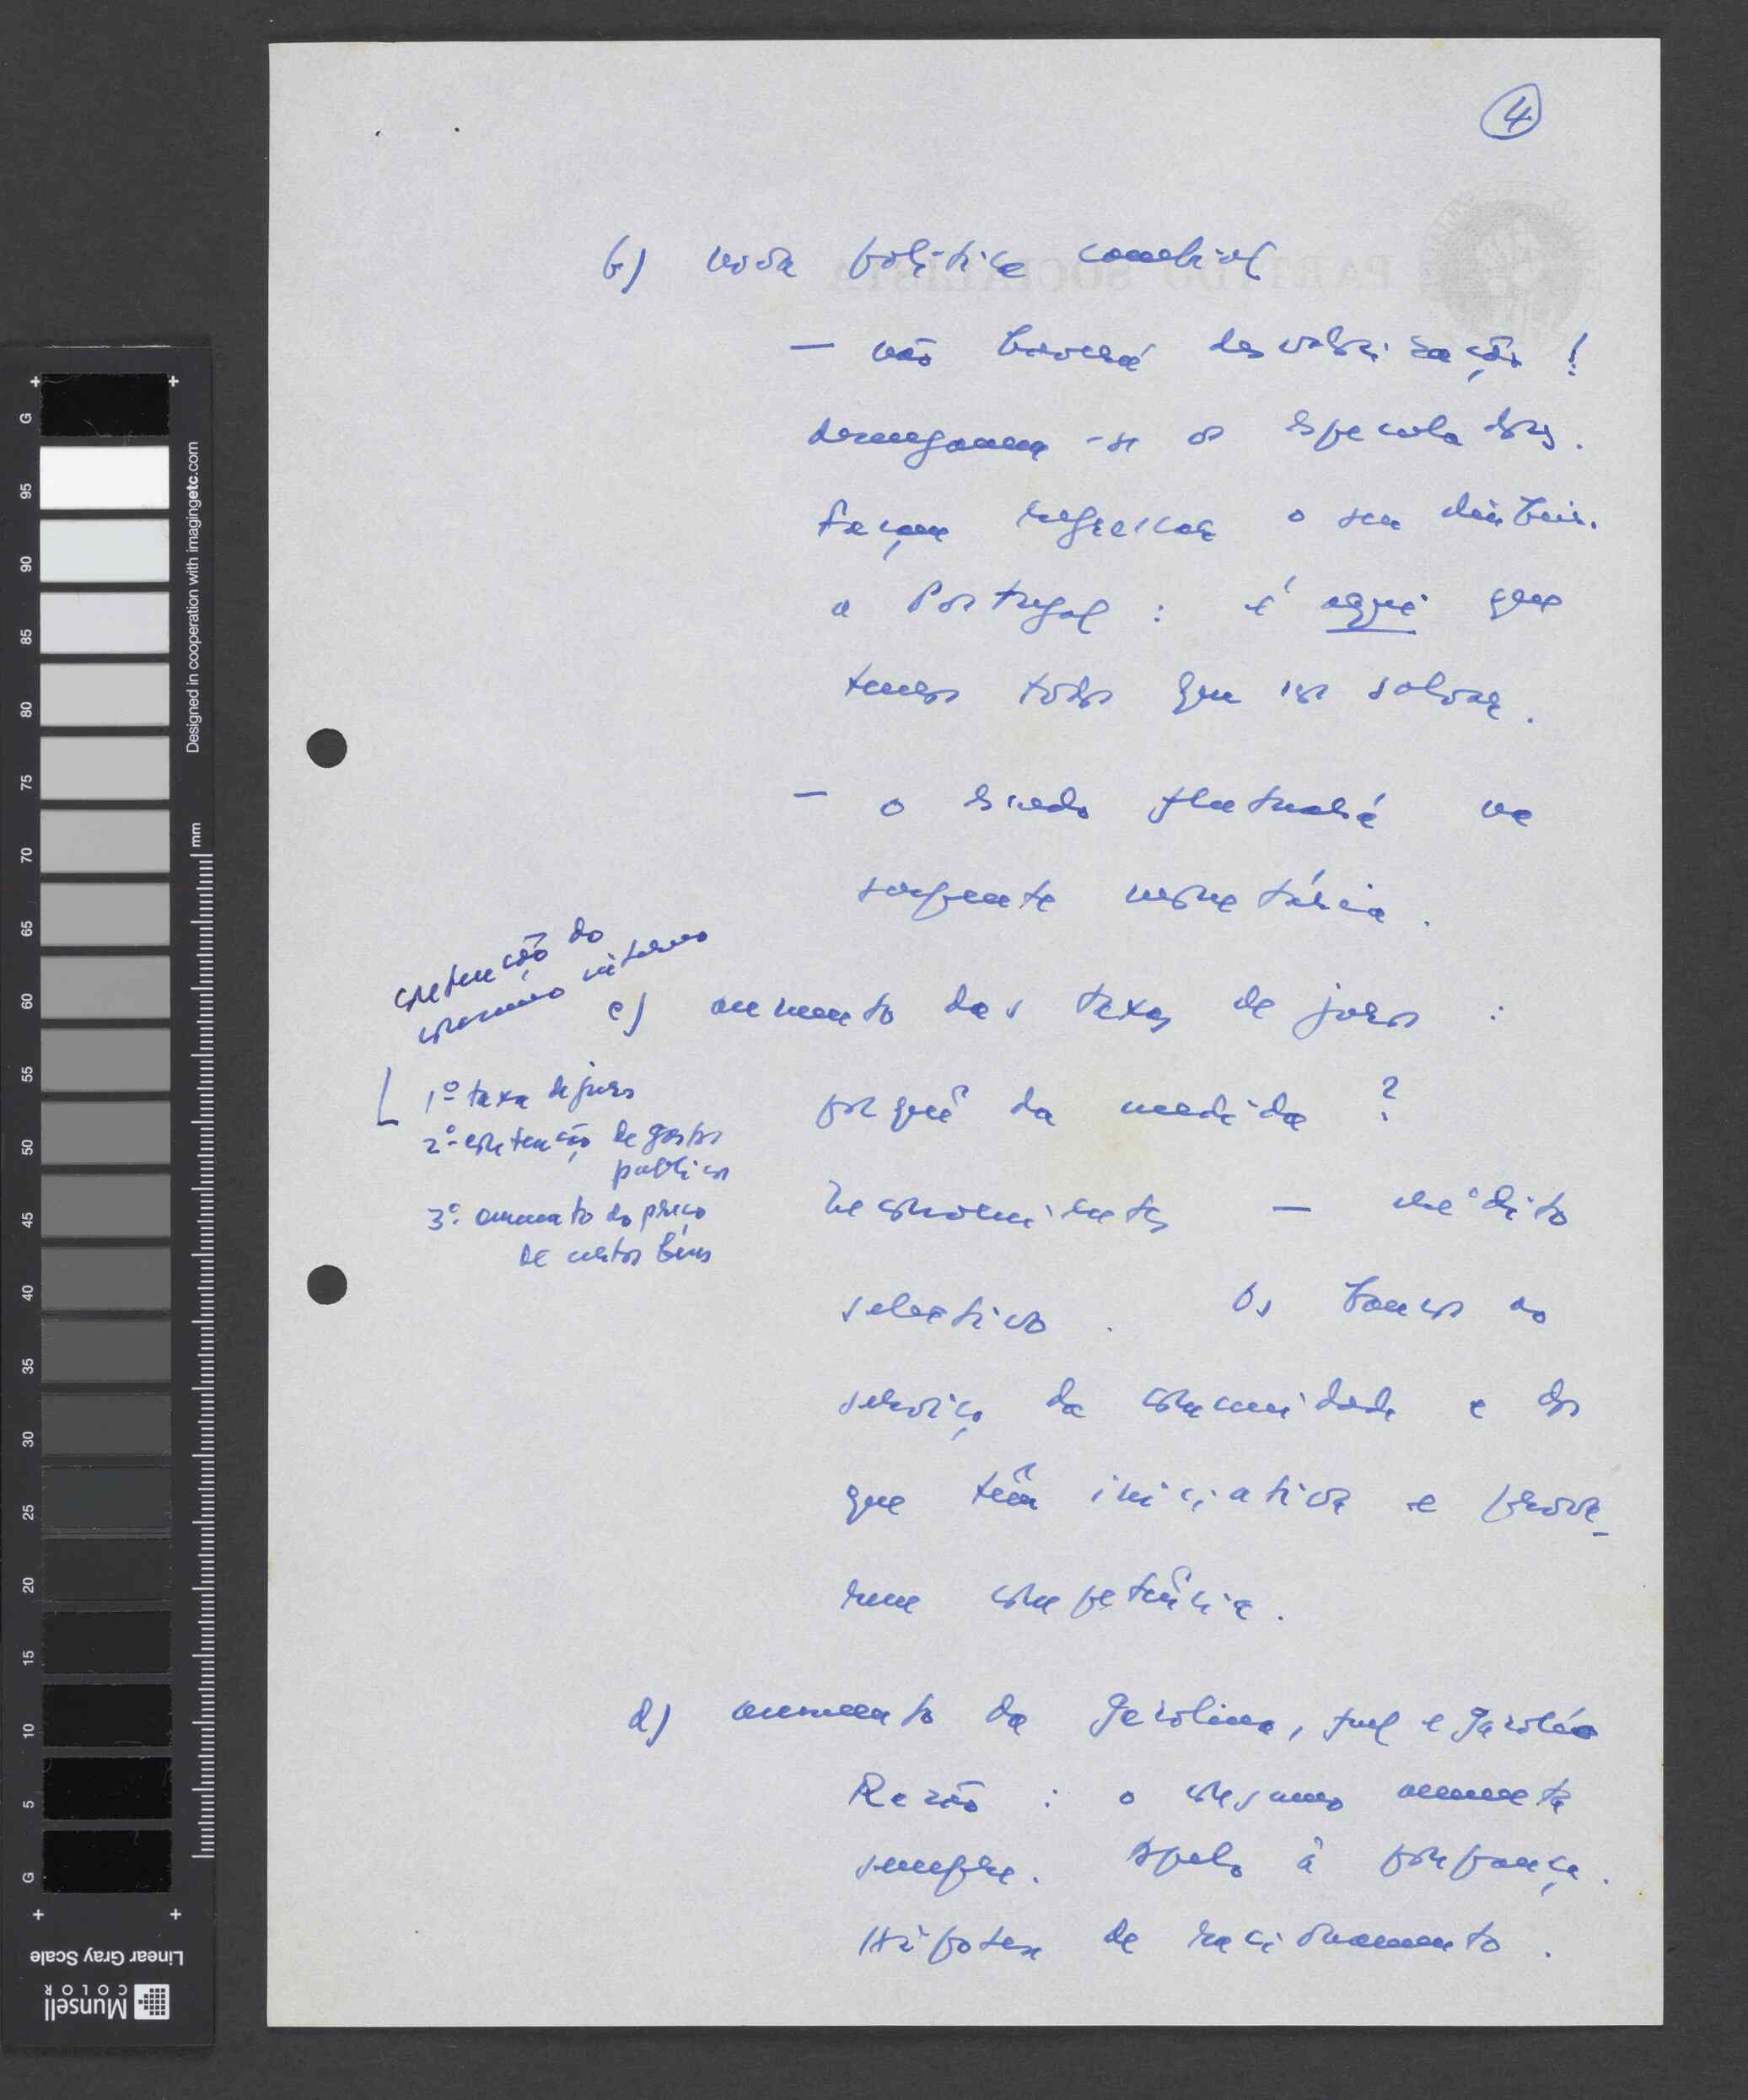 4
b) nova política cambial
— não haverá desvalorização!
desenganem-se os especuladores.
Façam regressar o seu dinheiro
a Portugal : é aqui que
temos todos que nos salvar.
— o escudo flutuará na
serpente monetária.
contenção do
consumo interno
c) aumento das taxas de juros :
1º taxa de juros
2º contenção de gastos
publicos
3º aumento do preço
de certos bens
porquê da medida ?
— crédito
selectivo. Os bancos ao
serviço da comunidade e dos
que têm iniciativa e prova-
rem competência.
d) aumento da gasolina, fuel e gasóleo
Razão : o consumo aumenta
sempre. Apelo à poupança.
Hipótese de racionamento.
PARTIDO SOCIALISTA
G
95
90
85
80
75
70
65
60
55
50
45
40
35
30
25
20
15
10
5
G
Designed in cooperation with imagingetc.com
mm
Linear Gray Scale
Munsell
COLOR